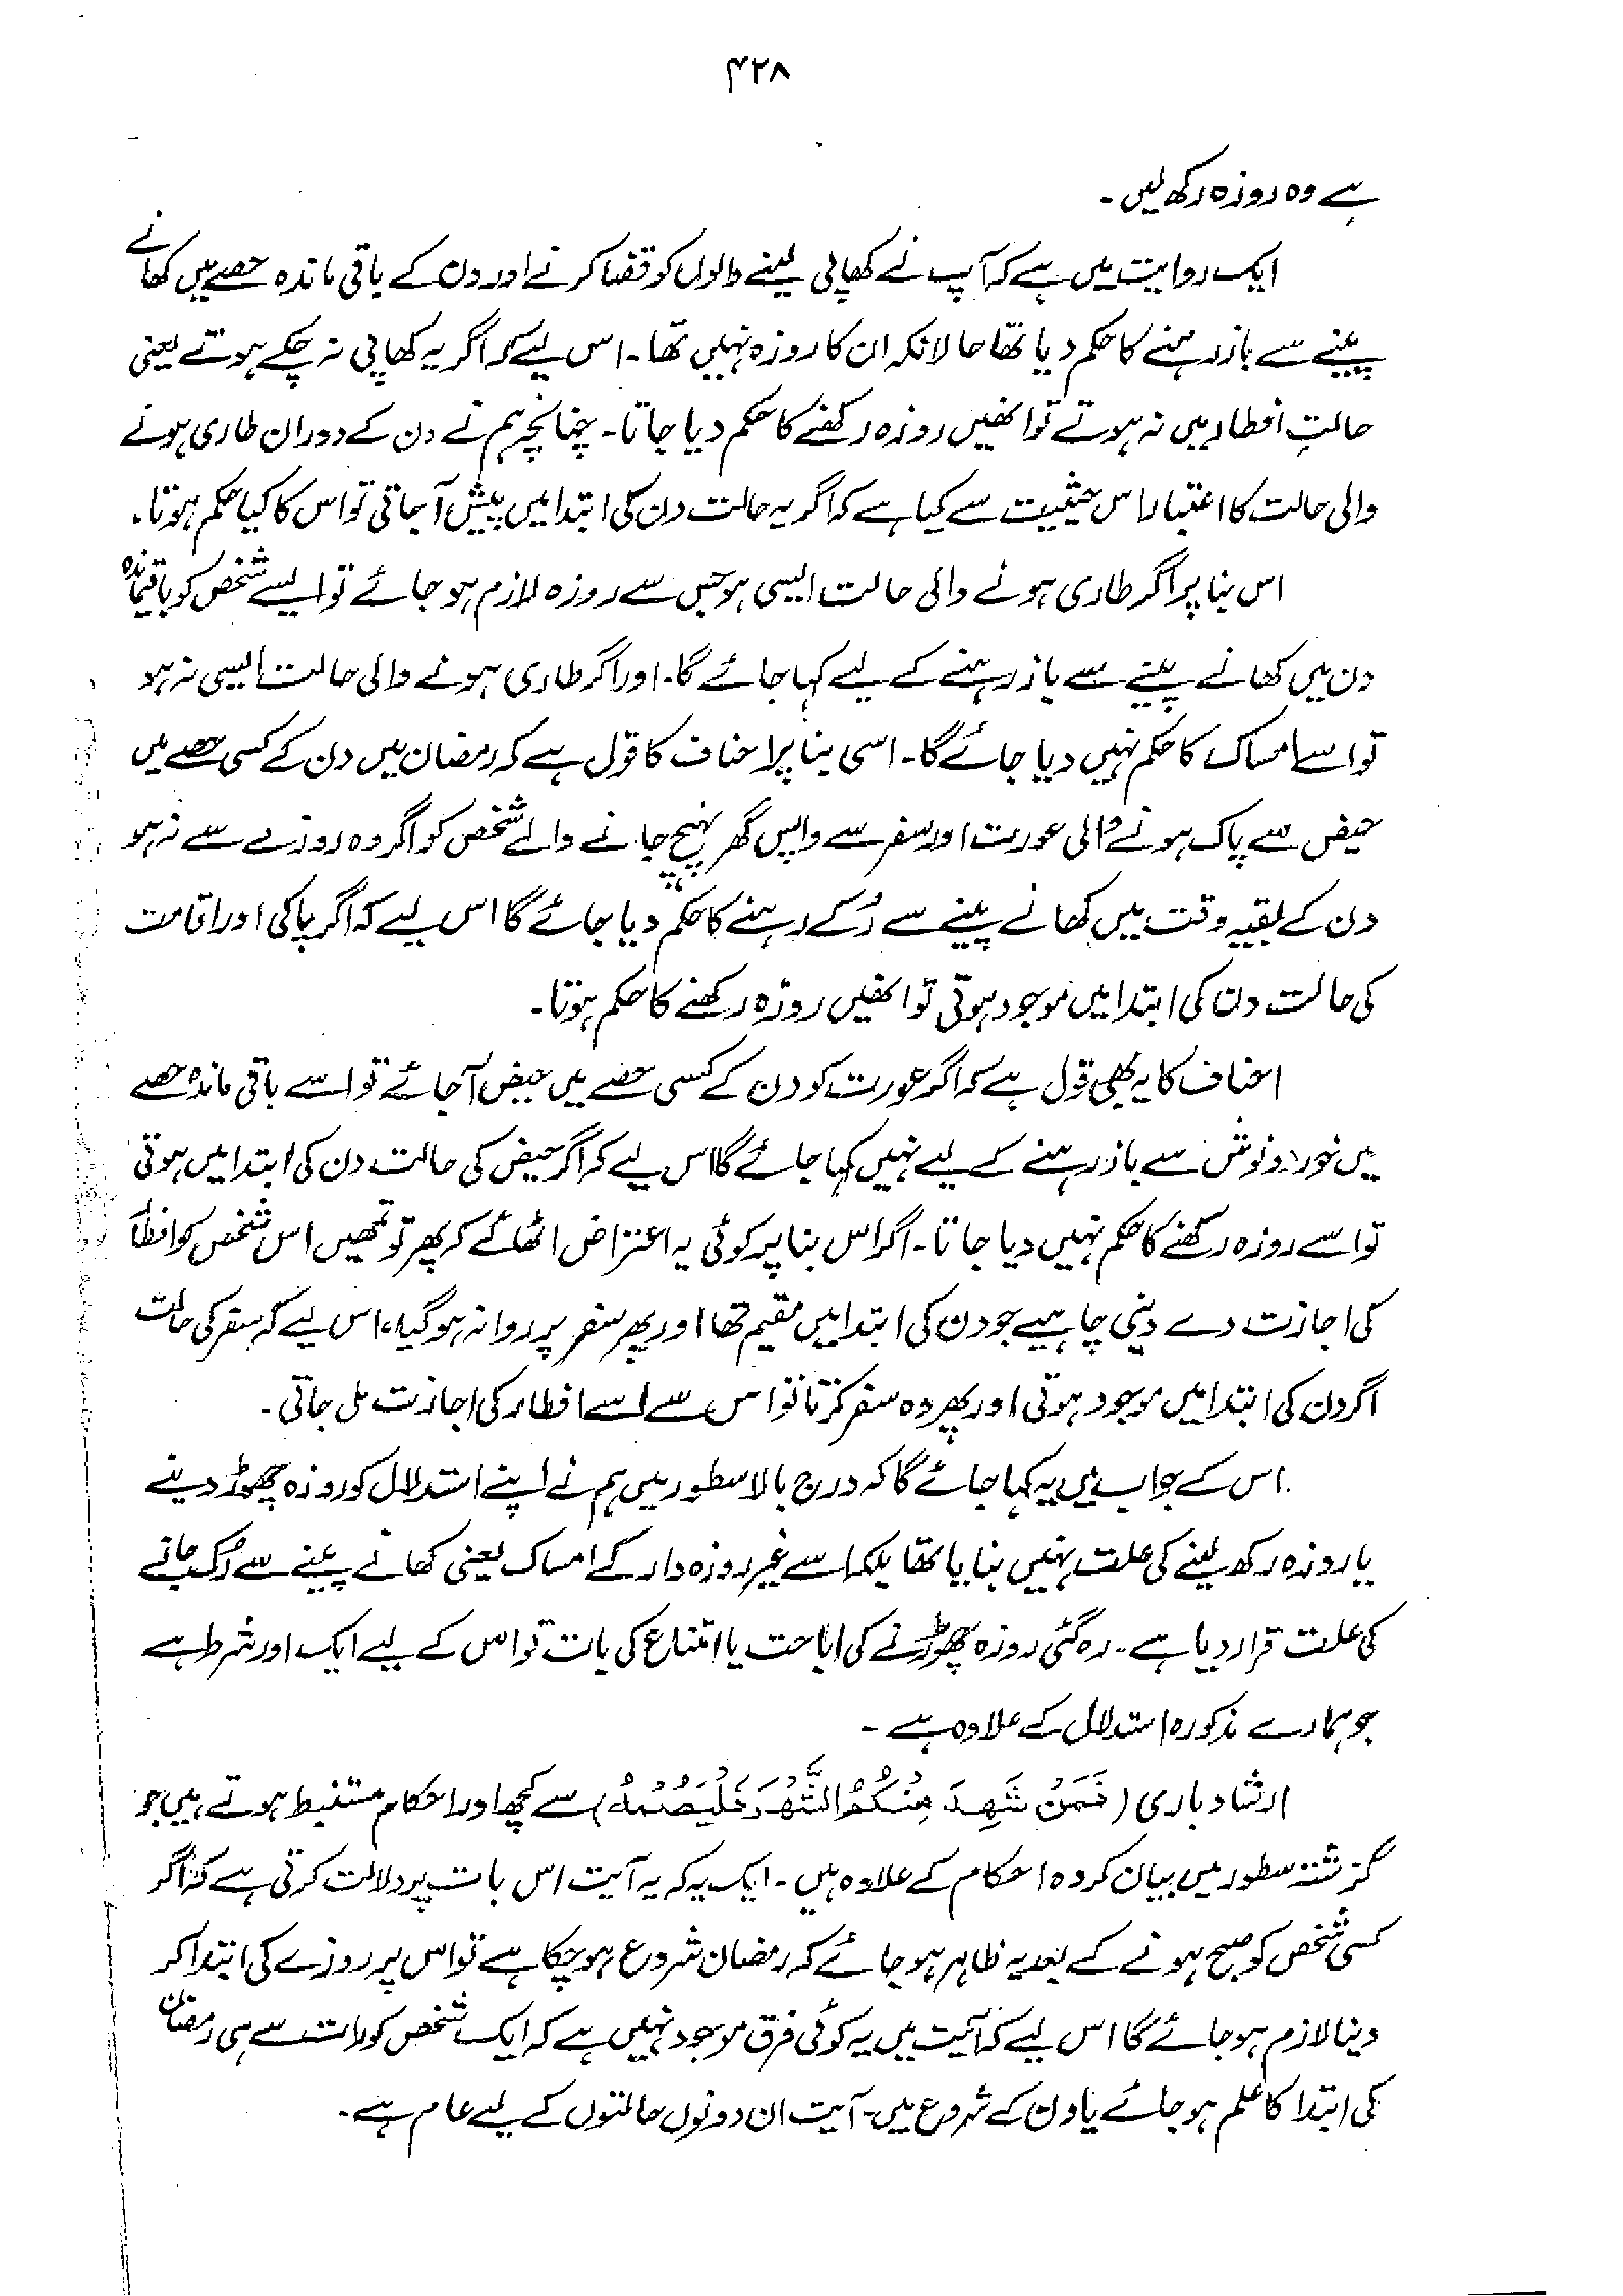 ۴۲۸
ہے وہ روزہ رکھ لیں۔
ایک روایت میں ہے کہ آپ نے کھاپی لینے والوں کو قضا کرنے اور دن کے باقی ماندہ حصے میں کھانے
پینے سے باز رہنے کا حکم دیا تھا حالانکہ ان کا روزہ نہیں تھا۔ اس لیے کہ اگر یہ کھاپی نہ چکے ہوتے یعنی
حالتِ افطار میں نہ ہوتے تو انھیں روزہ رکھنے کا حکم دیا جاتا۔ چنانچہ ہم نے دن کے دوران طاری ہونے
والی حالت کا اعتبار اس حیثیت سے کیا ہے کہ اگر یہ حالت دن کی ابتدا میں پیش آجاتی تو اس کا کیا حکم ہوتا۔
اس بنا پر اگر طاری ہونے والی حالت ایسی ہو جس سے روزہ لازم ہو جائے تو ایسے شخص کو باقیماندہ
دن میں کھانے پینے سے باز رہنے کے لیے کہا جائے گا۔ اور اگر طاری ہونے والی حالت ایسی نہ ہو
تو اسے امساک کا حکم نہیں دیا جائے گا۔ اسی بنا پر احناف کا قول ہے کہ رمضان میں دن کے کسی حصے میں
حیض سے پاک ہونے والی عورت اور سفر سے واپس گھر پہنچ جانے والے شخص کو اگر وہ روزے سے نہ ہو
دن کے بقیہ وقت میں کھانے پینے سے رُکے رہنے کا حکم دیا جائے گا اس لیے کہ اگر پاکی اور اقامت
کی حالت دن کی ابتدا میں موجود ہوتی تو انھیں روزہ رکھنے کا حکم ہوتا۔
احناف کا یہ بھی قول ہے کہ اگر عورت کو دن کے کسی حصے میں حیض آجائے تو اسے باقی ماندہ حصے
میں خورد و نوش سے باز رہنے کے لیے نہیں کہا جائے گا اس لیے کہ اگر حیض کی حالت دن کی ابتدا میں ہوتی
تو اسے روزہ رکھنے کا حکم نہیں دیا جاتا۔ اگر اس بنا پر کوئی یہ اعتراض اٹھائے کہ پھر تو تمھیں اس شخص کو افطار
کی اجازت دے دینی چاہیے جو دن کی ابتدا میں مقیم تھا اور پھر سفر پر روانہ ہوگیا، اس لیے کہ سفر کی حالت
اگر دن کی ابتدا میں موجود ہوتی اور پھر وہ سفر کرتا تو اس سے اسے افطار کی اجازت مل جاتی۔
اس کے جواب میں یہ کہا جائے گا کہ درج بالا سطور میں ہم نے اپنے استدلال کو روزہ چھوڑ دینے
یا روزہ رکھ لینے کی علت نہیں بنایا تھا بلکہ اسے غیر روزہ دار کے امساک یعنی کھانے پینے سے رُک جانے
کی علت قرار دیا ہے۔ رہ گئی روزہ چھوڑنے کی اباحت یا امتناع کی بات تو اس کے لیے ایک اور شرط ہے
جو ہمارے مذکورہ استدلال کے علاوہ ہے۔
ارشاد باری (فَمَنْ شَهِدَ مِنْكُمُ الشَّهْرَ فَلْيَصُمْهُ) سے کچھ اور احکام مستنبط ہوتے ہیں جو
گزشتہ سطور میں بیان کردہ احکام کے علاوہ ہیں۔ ایک یہ کہ یہ آیت اس بات پر دلالت کرتی ہے کہ اگر
کسی شخص کو صبح ہونے کے بعد یہ ظاہر ہو جائے کہ رمضان شروع ہو چکا ہے تو اس پر روزے کی ابتدا کر
دینا لازم ہو جائے گا اس لیے کہ آیت میں یہ کوئی فرق موجود نہیں ہے کہ ایک شخص کو رات سے ہی رمضان
کی ابتدا کا علم ہو جائے یا دن کے شروع میں۔ آیت ان دونوں حالتوں کے لیے عام ہے۔